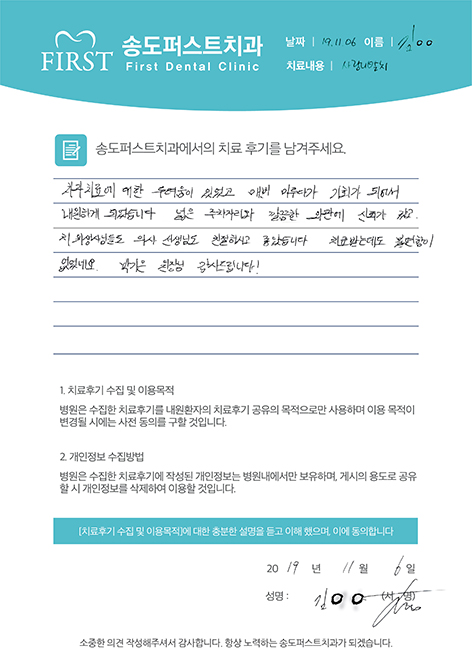 FIRST 송도퍼스트치과
First Dental Clinic
날짜 | 19. 11. 06 이름 | 김OO
치료내용 | 사랑니발치
송도퍼스트치과에서의 치료 후기를 남겨주세요.
치과치료에 대한 두려움이 있었고 매번 미루다가 기회가 되어서
내원하게 되었습니다 넓은 주차자리와 깔끔한 외관에 신뢰가 갔고.
치위생사분들도 의사 선생님도 친절하시고 좋았습니다 치료받는데도 불편함이
없었네요. 원장님 감사드립니다!
1. 치료후기 수집 및 이용목적
병원은 수집한 치료후기를 내원환자의 치료후기 공유의 목적으로만 사용하며 이용 목적이
변경될 시에는 사전 동의를 구할 것입니다.
2. 개인정보 수집방법
병원은 수집한 치료후기에 작성된 개인정보는 병원내에서만 보유하며, 게시의 용도로 공유
할 시 개인정보를 삭제하여 이용할 것입니다.
[치료후기 수집 및 이용목적]에 대한 충분한 설명을 듣고 이해 했으며, 이에 동의합니다
20 19 년 11 월 6 일
성명 : 김OO (서 명)
소중한 의견 작성해주셔서 감사합니다. 항상 노력하는 송도퍼스트치과가 되겠습니다.